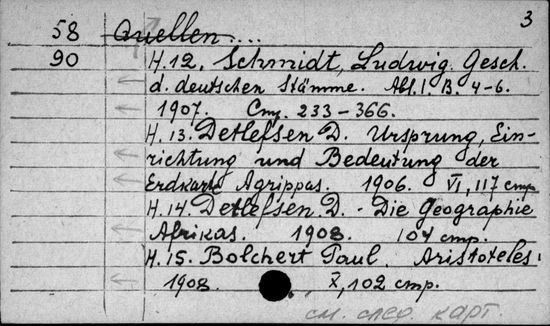 3
58 Quellen....
90 H.12. Schmidt, Ludwig. Gesch.
d. deutschen Stämme. Abt.I. B. 4-6.
1907. Стр. 233-366.
H.13. Detlefsen D. Ursprung, Ein-
richtung und Bedeutung der
Erdkarte Agrippas. 1906. VI, 117 стр.
H.14. Detlefsen D. - Die Geographie
Afrikas. 1908. 104 стр.
H.15. Bolchert Paul. Aristoteles'
1908. X, 102 стр.
см. след. карт.